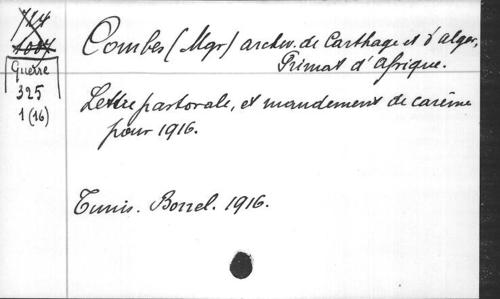 Guerre
325
1 (16)
Combes (Mgr) archev. de Carthage et d'alger,
Primat d'Afrique.
Lettre pastorale, et mandement de carême
pour 1916.
Tunis. Borrel. 1916.